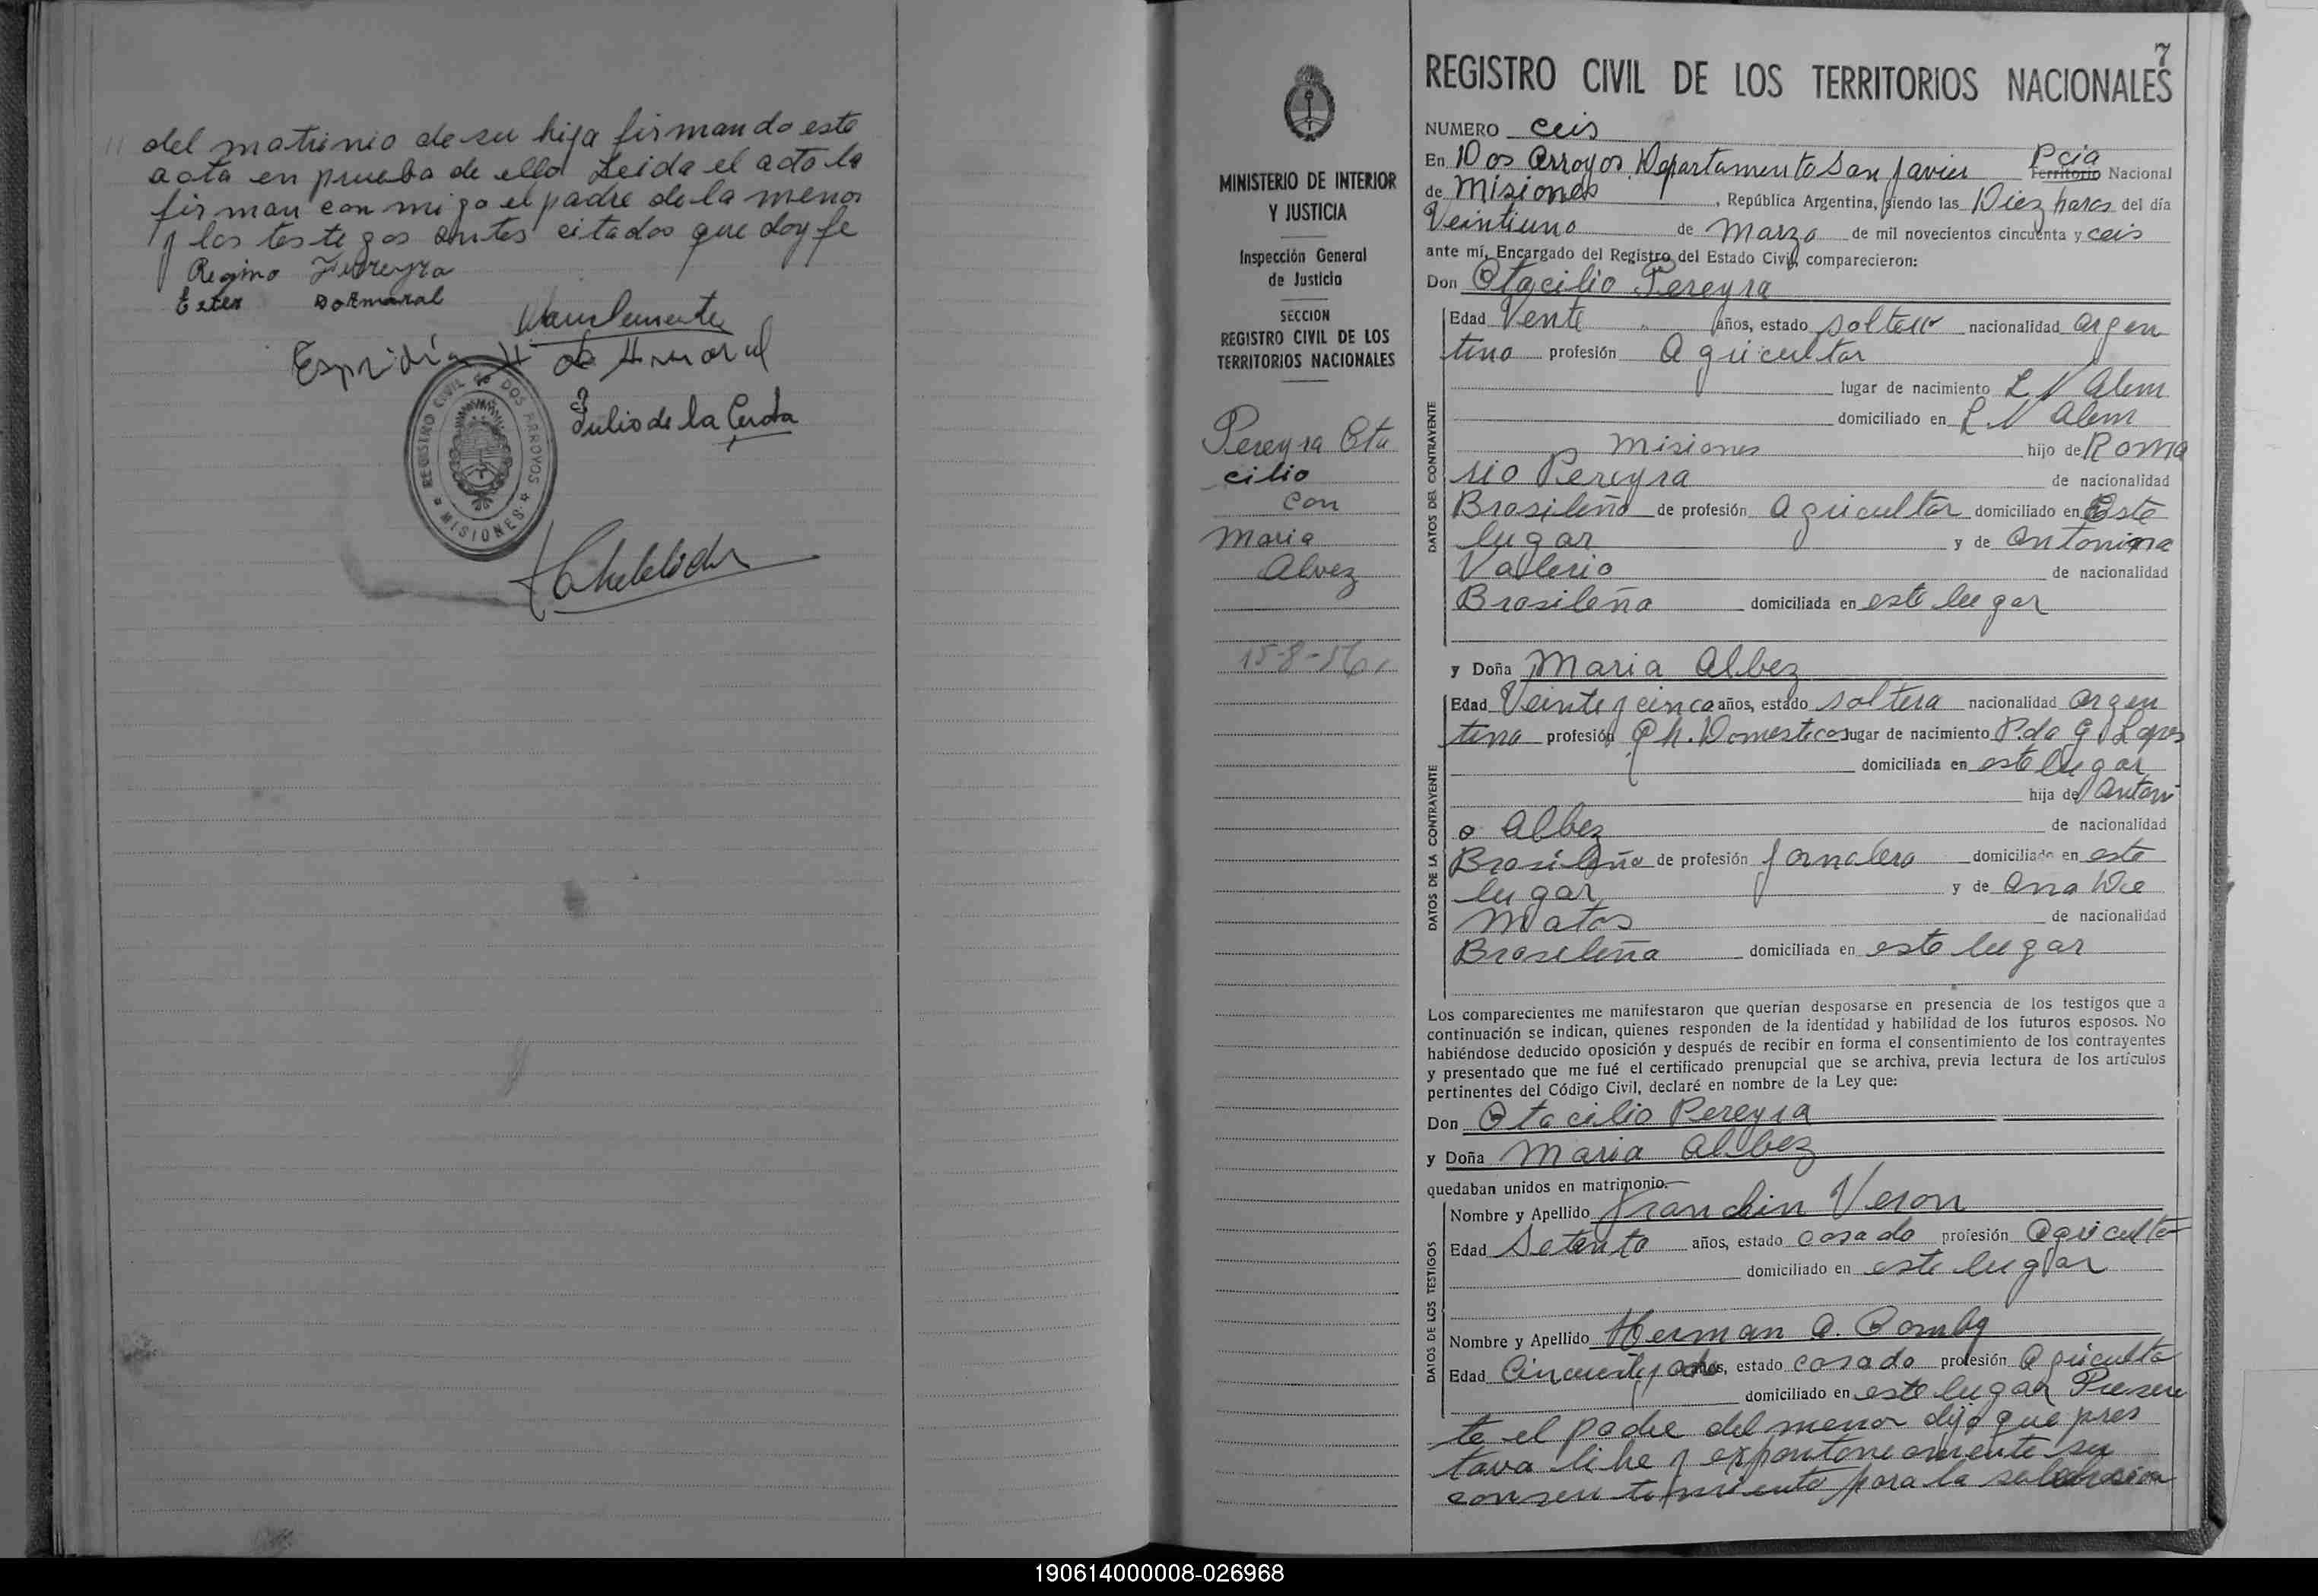 del matrinio de su hija firmando este
acta en prueba de ello Leida el acta la
firman con migo el padre de la menor
y los testegos antes citados que doy fe
Regino Ferreyra
Ester DoAmaral
de Amaral
Julio de la Cerda
REGISTRO CIVIL de DOS ARROYOS
MISIONES
7
REGISTRO CIVIL DE LOS TERRITORIOS NACIONALES
MINISTERIO DE INTERIOR
Y JUSTICIA
Inspección General
de Justicia
SECCION
REGISTRO CIVIL DE LOS
TERRITORIOS NACIONALES
Pereyra Ota
cilio
con
Maria
Alvez
15-8-56
NUMERO ceis
En Dos Arroyos Departamento San Javier Pcia Territorio Nacional
de Misiones, República Argentina, siendo las Diez haras del día
Veintiuno de Marzo de mil novecientos cincuenta y ceis
ante mí, Encargado del Registro del Estado Civil, comparecieron:
Don Otacilio Pereyra
DATOS DEL CONTRAYENTE
Edad Vente años, estado soltero nacionalidad argen
tino profesión Agricultor
lugar de nacimiento L N Alem
domiciliado en L N Alem
Misiones hijo de Roma
rio Pereyra de nacionalidad
Brasileño de profesión Agricultor domiciliado en Este
lugar y de Antonina
Vallerio de nacionalidad
Brasileña domiciliada en este lugar
y Doña Maria Albez
DATOS DE LA CONTRAYENTE
Edad Veinte y cinco años, estado soltera nacionalidad argen
tina profesión Q h. Domesticos lugar de nacimiento P. da G. Lopes
domiciliada en este lugar
hija de Antoni
o Albez de nacionalidad
Brasileño de profesión Jornalero domiciliado en este
lugar y de Ana De
Matos de nacionalidad
Brasileña domiciliada en este lugar
Los comparecientes me manifestaron que querían desposarse en presencia de los testigos que a
continuación se indican, quienes responden de la identidad y habilidad de los futuros esposos. No
habiéndose deducido oposición y después de recibir en forma el consentimiento de los contrayentes
y presentado que me fué el certificado prenupcial que se archiva, previa lectura de los artículos
pertinentes del Código Civil, declaré en nombre de la Ley que:
Don Otacilio Pereyra
y Doña Maria Albez
quedaban unidos en matrimonio.
DATOS DE LOS TESTIGOS
Nombre y Apellido Franchin Veron
Edad Setenta años, estado casado profesión Agriculto
domiciliado en este lugar
Nombre y Apellido Herman A.
Edad Cincuenta y años, estado casado profesión Agriculto
domiciliado en este lugar Presen
te el padre del menor dijo que pres
tava libre y expontaneamente su
consentimiento para la selebrasion
190614000008-026968